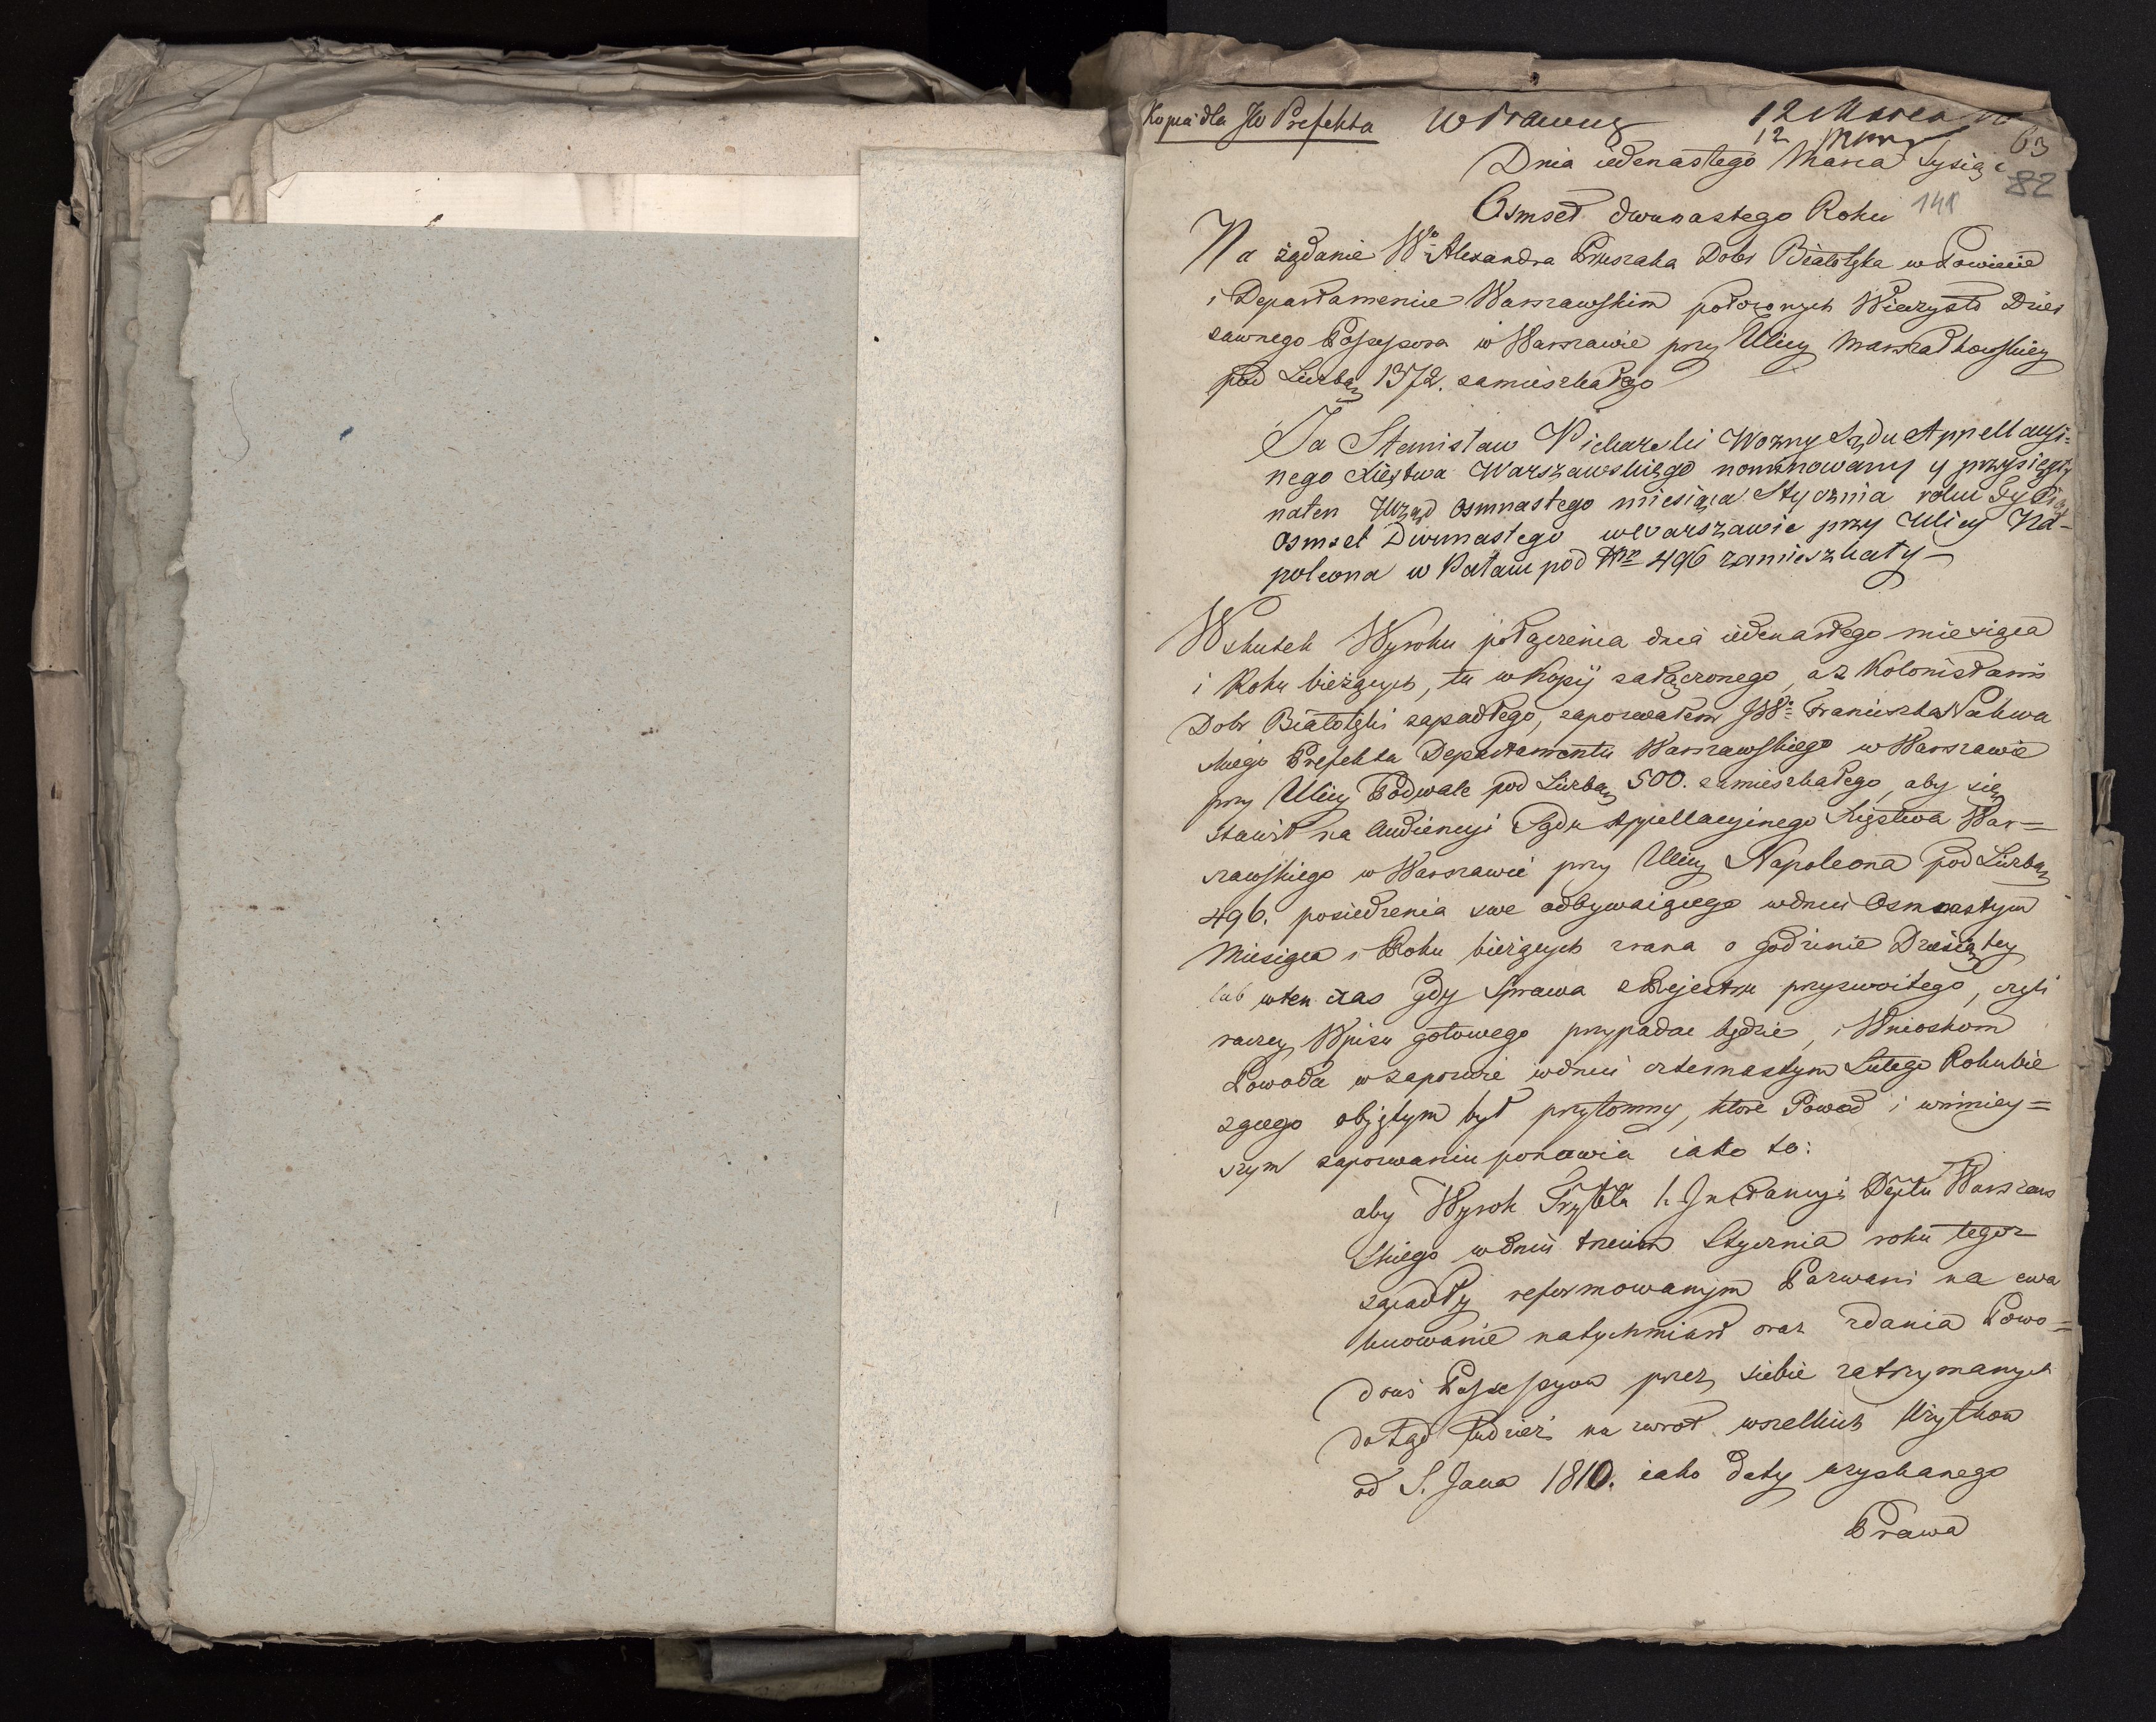 Kopia dla JW Prefekta
12 Marca
63
Dnia iedenastego Marca Tysiąc
82
Osmset dwunastego Roku 141
Na żądanie Wo Alexandra Pruszaka Dobr Białołęka w Powiecie
i Departamencie Warszawskim położonych Wieczysto Dzier
zawnego Possessora w Warszawie przy Ulicy Marszałkowskiey
pod Liczbą 1372. zamieszkałego
Ja Stanisław Picharski Wozny Sądu Appellacyi-
nego Xięstwa Warszawskiego nominowany y przysięgły
naten Urząd Osmnastego miesiąca Stycznia roku Tysiąc
Osmset Dwunastego w Warszawie przy Ulicy Na-
poleona w Pałacu pod Nro 496 zamieszkały
Wskutek Wyroku połączenia dnia iedenastego miesiąca
i Roku bieżących, tu w Kopij załączonego, a z Kolonistami
Dobr Białołęki zapadłego, zapozwałem JWo Franciszka Nakwa
skiego Prefekta Departamentu Warszawskiego w Warszawie
przy Ulicy Podwale pod Liczbą 500. zamieszkałego, aby się
stawił na Audiencyi Sądu Appellacyinego Xięstwa War=
szawskiego w Warszawie przy Ulicy Napoleona pod Liczbą
496. posiedzenia swe odbywaiącego w dniu Osmnastym
Miesiąca i Roku bieżących zrana o godzinie Dziesiątey
lub wten czas gdy Sprawa z Rejestru przyzwoitego, czyli
raczey Wpisu gotowego przypadać będzie, i Wnioskom
Powoda w zapozwie w dniu czternastym Lutego Roku bie
żącego objętym był przytomny, ktore Powod i wniniey=
szym zapozwaniu ponawia iako to:
aby Wyrok Trybłu 1. Instancyi Deptu Warszaw
skiego w dniu trzecim Stycznia roku tegoż
zapadły reformowanym Pozwani na ewa
kuowanie natychmiast oraz zdania Powo=
dowi Possessyow przez siebie zatrzymanych
dotąd tudzież na zwrot wszelkich Użytkow
od S. Jana 1810. iako daty uzyskanego
Prawa